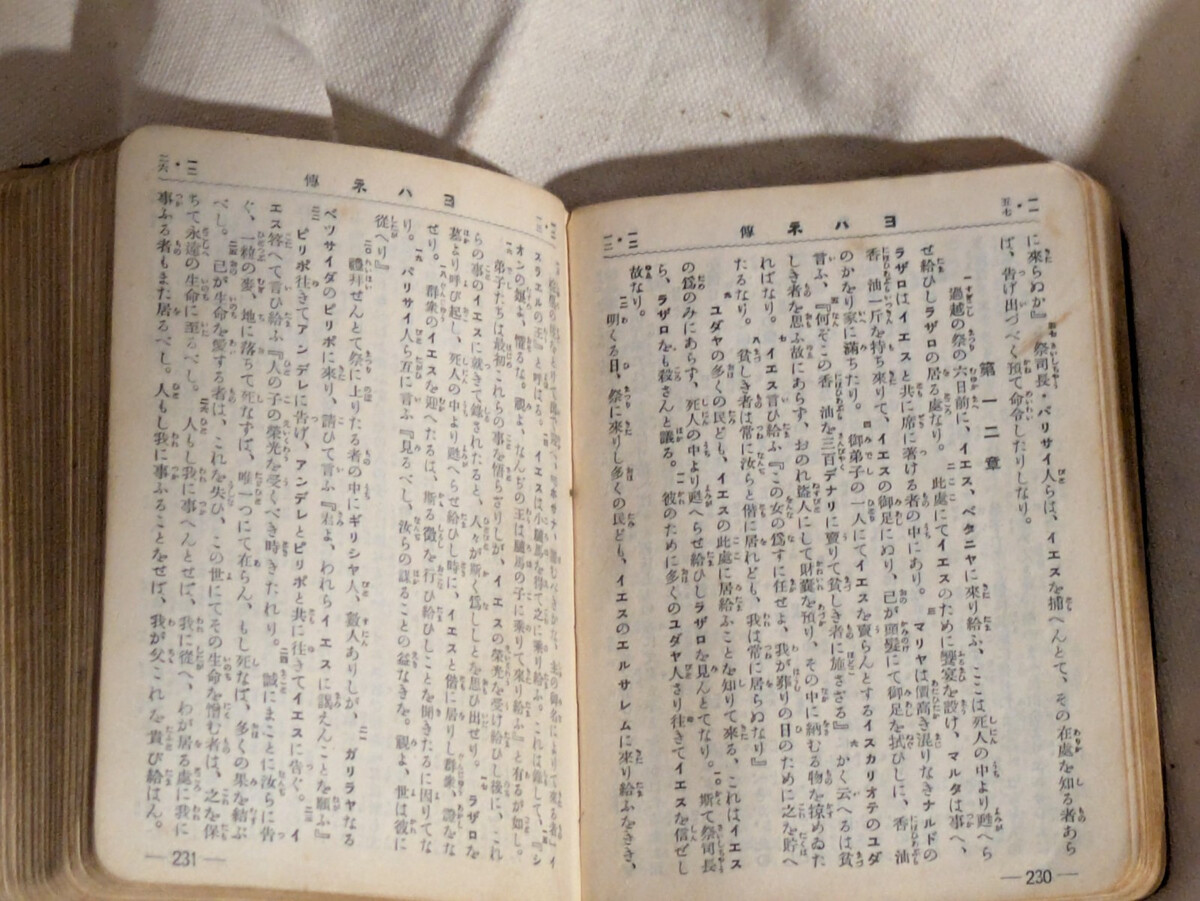 一一・五七
ヨハネ傳
一二・一二
に來らぬか』 五七祭司長・パリサイ人らは、イエスを捕へんとて、その在處を知る者あら
ば、告げ出づべく預て命令したりしなり。
第一二章
一過越の祭の六日前に、イエス、ベタニヤに來り給ふ、ここは死人の中より甦へら
せ給ひしラザロの居る處なり。 二此處にてイエスのために饗宴を設け、マルタは事へ、
ラザロはイエスと共に席に著ける者の中にあり。 三マリヤは價高き混りなきナルドの
香油一斤を持ち來りて、イエスの御足にぬり、己が頭髮にて御足を拭ひしに、香油
のかをり家に滿ちたり。 四御弟子の一人にてイエスを賣らんとするイスカリオテのユダ
言ふ、 五『何ぞこの香油を三百デナリに賣りて貧しき者に施さざる』 六かく云へるは貧
しき者を思ふ故にあらず、おのれ盜人にして財嚢を預り、その中に納むる物を掠めゐた
ればなり。 七イエス言ひ給ふ『この女の爲すに任せよ、我が葬りの日のために之を貯へ
たるなり。 八貧しき者は常に汝らと偕に居れども、我は常に居らぬなり』
九ユダヤの多くの民ども、イエスの此處に居給ふことを知りて來る、これはイエス
の爲のみにあらず、死人の中より甦へらせ給ひしラザロを見んとてなり。 一〇斯て祭司長
ら、ラザロをも殺さんと議る。 一一彼のために多くのユダヤ人さり往きてイエスを信ぜし
故なり。
一二明くる日、祭に來りし多くの民ども、イエスのエルサレムに來り給ふをきき、
230
ヨハネ傳
一二・二六
主の御名によりて來る者』イ
スラエルの王』と呼はる。 一四イエスは小驢馬を得て之に乘り給ふ。これは録して、 一五『シ
オンの娘よ、懼るな。視よ、なんぢの王は驢馬の子に乘りて來り給ふ』と有るが如し。
一六弟子たちは最初これらの事を悟らざりしが、イエスの榮光を受け給ひし後に、これ
らの事のイエスに就きて録されたると、人々が斯く爲ししとを思ひ出せり。 一七ラザロを
墓より呼び起し、死人の中より甦へらせ給ひし時に、イエスと偕に居りし群衆、證をな
せり。 一八群衆のイエスを迎へたるは、斯る徴を行ひ給ひしことを聞きたるに因りてな
り。 一九パリサイ人ら互に言ふ『見るべし、汝らの謀ることの益なきを。視よ、世は彼に
從へり』
二〇禮拜せんとて祭に上りたる者の中にギリシヤ人、數人ありしが、 二一ガリラヤなる
ベツサイダのピリポに來り、請ひて言ふ『君よ、われらイエスに謁えんことを願ふ』
二二ピリポ往きてアンデレに告げ、アンデレとピリポと共に往きてイエスに告ぐ。 二三イ
エス答へて言ひ給ふ『人の子の榮光を受くべき時きたれり。 二四誠にまことに汝らに告
ぐ、一粒の麥、地に落ちて死なずば、唯一つにて在らん、もし死なば、多くの果を結ぶ
べし。 二五己が生命を愛する者は、これを失ひ、この世にてその生命を憎む者は、之を保
ちて永遠の生命に至るべし。 二六人もし我に事へんとせば、我に從へ、わが居る處に我に
事ふる者もまた居るべし。人もし我に事ふることをせば、我が父これを貴び給はん。
231